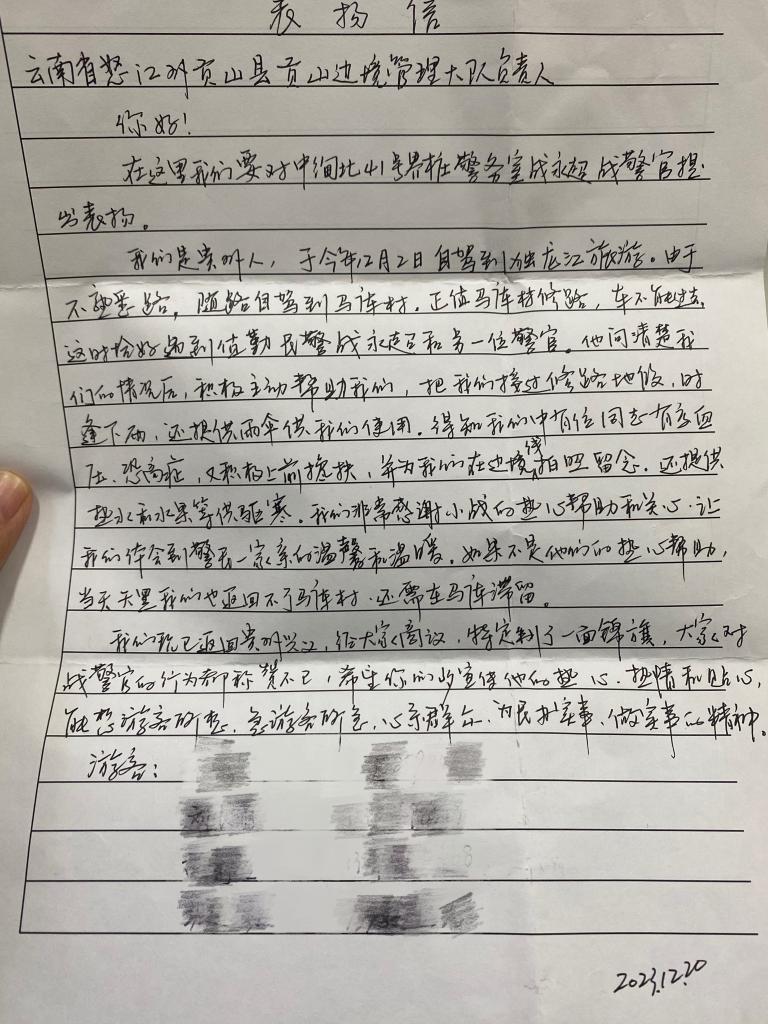 表扬信
云南省怒江州贡山县贡山边境管理大队负责人
你好!
在这里我们要对中缅北41号界桩警务室战永超战警官提
出表扬。
我们是贵州人，于今年12月2日自驾到独龙江旅游。由于
不熟悉路，随路自驾到马库村。正值马库村修路，车不能过去，
这时恰好遇到值勤民警战永超和另一位警官。他问清楚我
们的情况后，积极主动帮助我们，把我们接过修路地段，时
逢下雨，还提供雨伞供我们使用。得知我们中有位同志有高血
压、恐高症，又积极上前搀扶，并为我们在边境线拍照留念。还提供
热水和水果等供驱寒。我们非常感谢小战的热心帮助和关心，让
我们体会到警民一家亲的温馨和温暖。如果不是他们的热心帮助，
当天天黑我们也返回不了马库村，还需在马库滞留。
我们现已返回贵州兴义，经大家商议，特定制了一面锦旗，大家对
战警官的行为都称赞不已，希望你们多宣传他的热心、热情和贴心，
能想游客所想，急游客所急，心系群众、为民办实事、做实事的精神。
游客：
2023.12.20